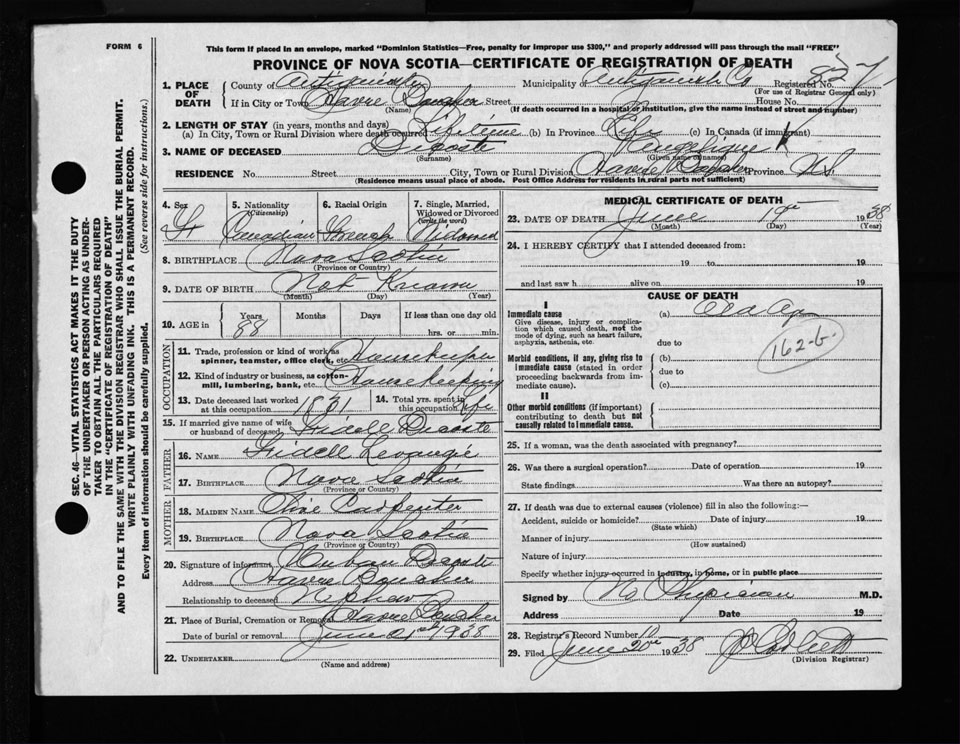 FORM 6
This form if placed in an envelope, marked "Dominion Statistics—Free, penalty for improper use $300," and properly addressed will pass through the mail "FREE"
PROVINCE OF NOVA SCOTIA—CERTIFICATE OF REGISTRATION OF DEATH
1. PLACE OF DEATH
County of Antigonish Municipality of Antigonish Co Registered No. 827
(For use of Registrar General only)
If in City or Town Havre Boucher Street House No.
(Name) (If death occurred in a hospital or institution, give the name instead of street and number)
2. LENGTH OF STAY (in years, months and days)
(a) In City, Town or Rural Division where death occurred Lifetime (b) In Province Life (c) In Canada (if immigrant)
3. NAME OF DECEASED Decoste Angelique
(Surname) (Given name or names)
RESIDENCE No. Street City, Town or Rural Division Havre Boucher Province N.S.
(Residence means usual place of abode. Post Office Address for residents in rural parts not sufficient)
4. Sex F
5. Nationality (Citizenship) Canadian
6. Racial Origin French
7. Single, Married, Widowed or Divorced (write the word) Widowed
8. BIRTHPLACE Nova Scotia
(Province or Country)
9. DATE OF BIRTH Not Known
(Month) (Day) (Year)
10. AGE in Years Months Days If less than one day
88 hrs. or min.
OCCUPATION
11. Trade, profession or kind of work as spinner, teamster, office clerk, etc. Housekeeper
12. Kind of industry or business, as cotton-mill, lumbering, bank, etc. Housekeeping
13. Date deceased last worked at this occupation 1931
14. Total yrs. spent in this occupation Life
15. If married give name of wife or husband of deceased Fidell Decoste
FATHER
16. NAME Fidell Levangie
17. BIRTHPLACE Nova Scotia
(Province or Country)
MOTHER
18. MAIDEN NAME Olive Carpenter
19. BIRTHPLACE Nova Scotia
(Province or Country)
20. Signature of informant Urban Decoste
Address Havre Boucher
Relationship to deceased Nephew
21. Place of Burial, Cremation or Removal Havre Boucher
Date of burial or removal June 21st 1938
22. UNDERTAKER
(Name and address)
MEDICAL CERTIFICATE OF DEATH
23. DATE OF DEATH June 19th 1938
(Month) (Day) (Year)
24. I HEREBY CERTIFY that I attended deceased from:
19 to 19
and last saw h alive on 19
CAUSE OF DEATH
I
Immediate cause
Give disease, injury or complication which caused death, not the mode of dying, such as heart failure, asphyxia, asthenia, etc.
(a) Old Age
due to
162-b.
Morbid conditions, if any, giving rise to immediate cause (stated in order proceeding backwards from immediate cause).
(b)
due to
(c)
II
Other morbid conditions (if important) contributing to death but not causally related to immediate cause.
25. If a woman, was the death associated with pregnancy?
26. Was there a surgical operation? Date of operation 19
State findings Was there an autopsy?
27. If death was due to external causes (violence) fill in also the following:—
Accident, suicide or homicide? Date of injury 19
(State which)
Manner of injury
(How sustained)
Nature of injury
Specify whether injury occurred in industry, in home, or in public place
Signed by No Physician M.D.
Address Date 19
28. Registrar's Record Number 11
29. Filed June 20th 1938
(Division Registrar)
SEC. 46—VITAL STATISTICS ACT MAKES IT THE DUTY
OF THE UNDERTAKER OR PERSON ACTING AS UNDER-
TAKER TO OBTAIN ALL THE PARTICULARS REQUIRED
IN THE "CERTIFICATE OF REGISTRATION OF DEATH"
AND TO FILE THE SAME WITH THE DIVISION REGISTRAR WHO SHALL ISSUE THE BURIAL PERMIT.
WRITE PLAINLY WITH UNFADING INK. THIS IS A PERMANENT RECORD.
Every item of information should be carefully supplied. (See reverse side for instructions.)